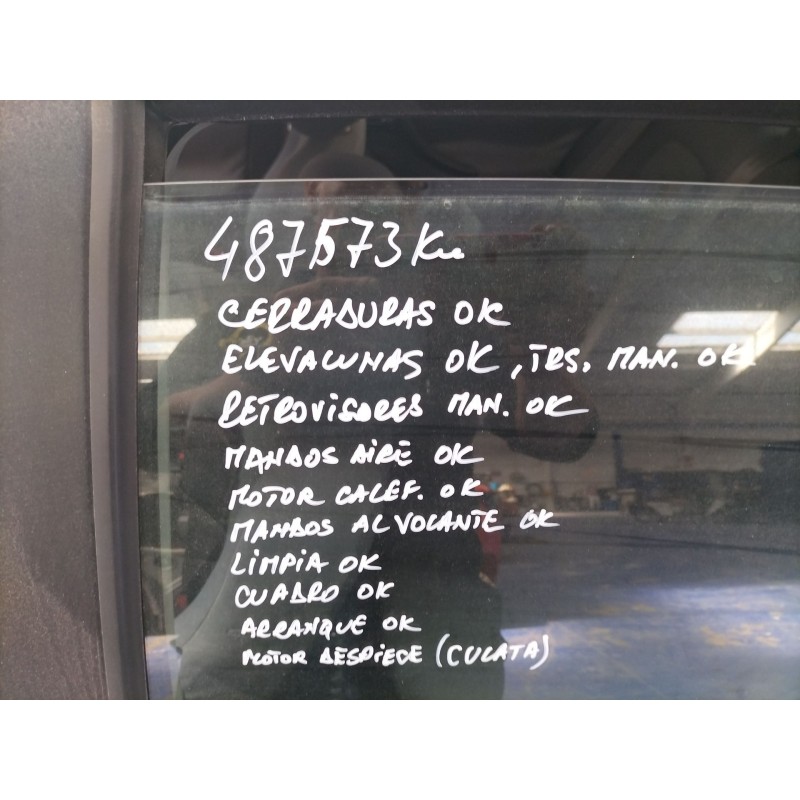 487573 Km
CERRADURAS OK
ELEVALUNAS OK, TRS. MAN. OK
RETROVISORES MAN. OK
MANDOS AIRE OK
MOTOR CALEF. OK
MANDOS AL VOLANTE OK
LIMPIA OK
CUADRO OK
ARRANQUE OK
MOTOR DESPIECE (CULATA)